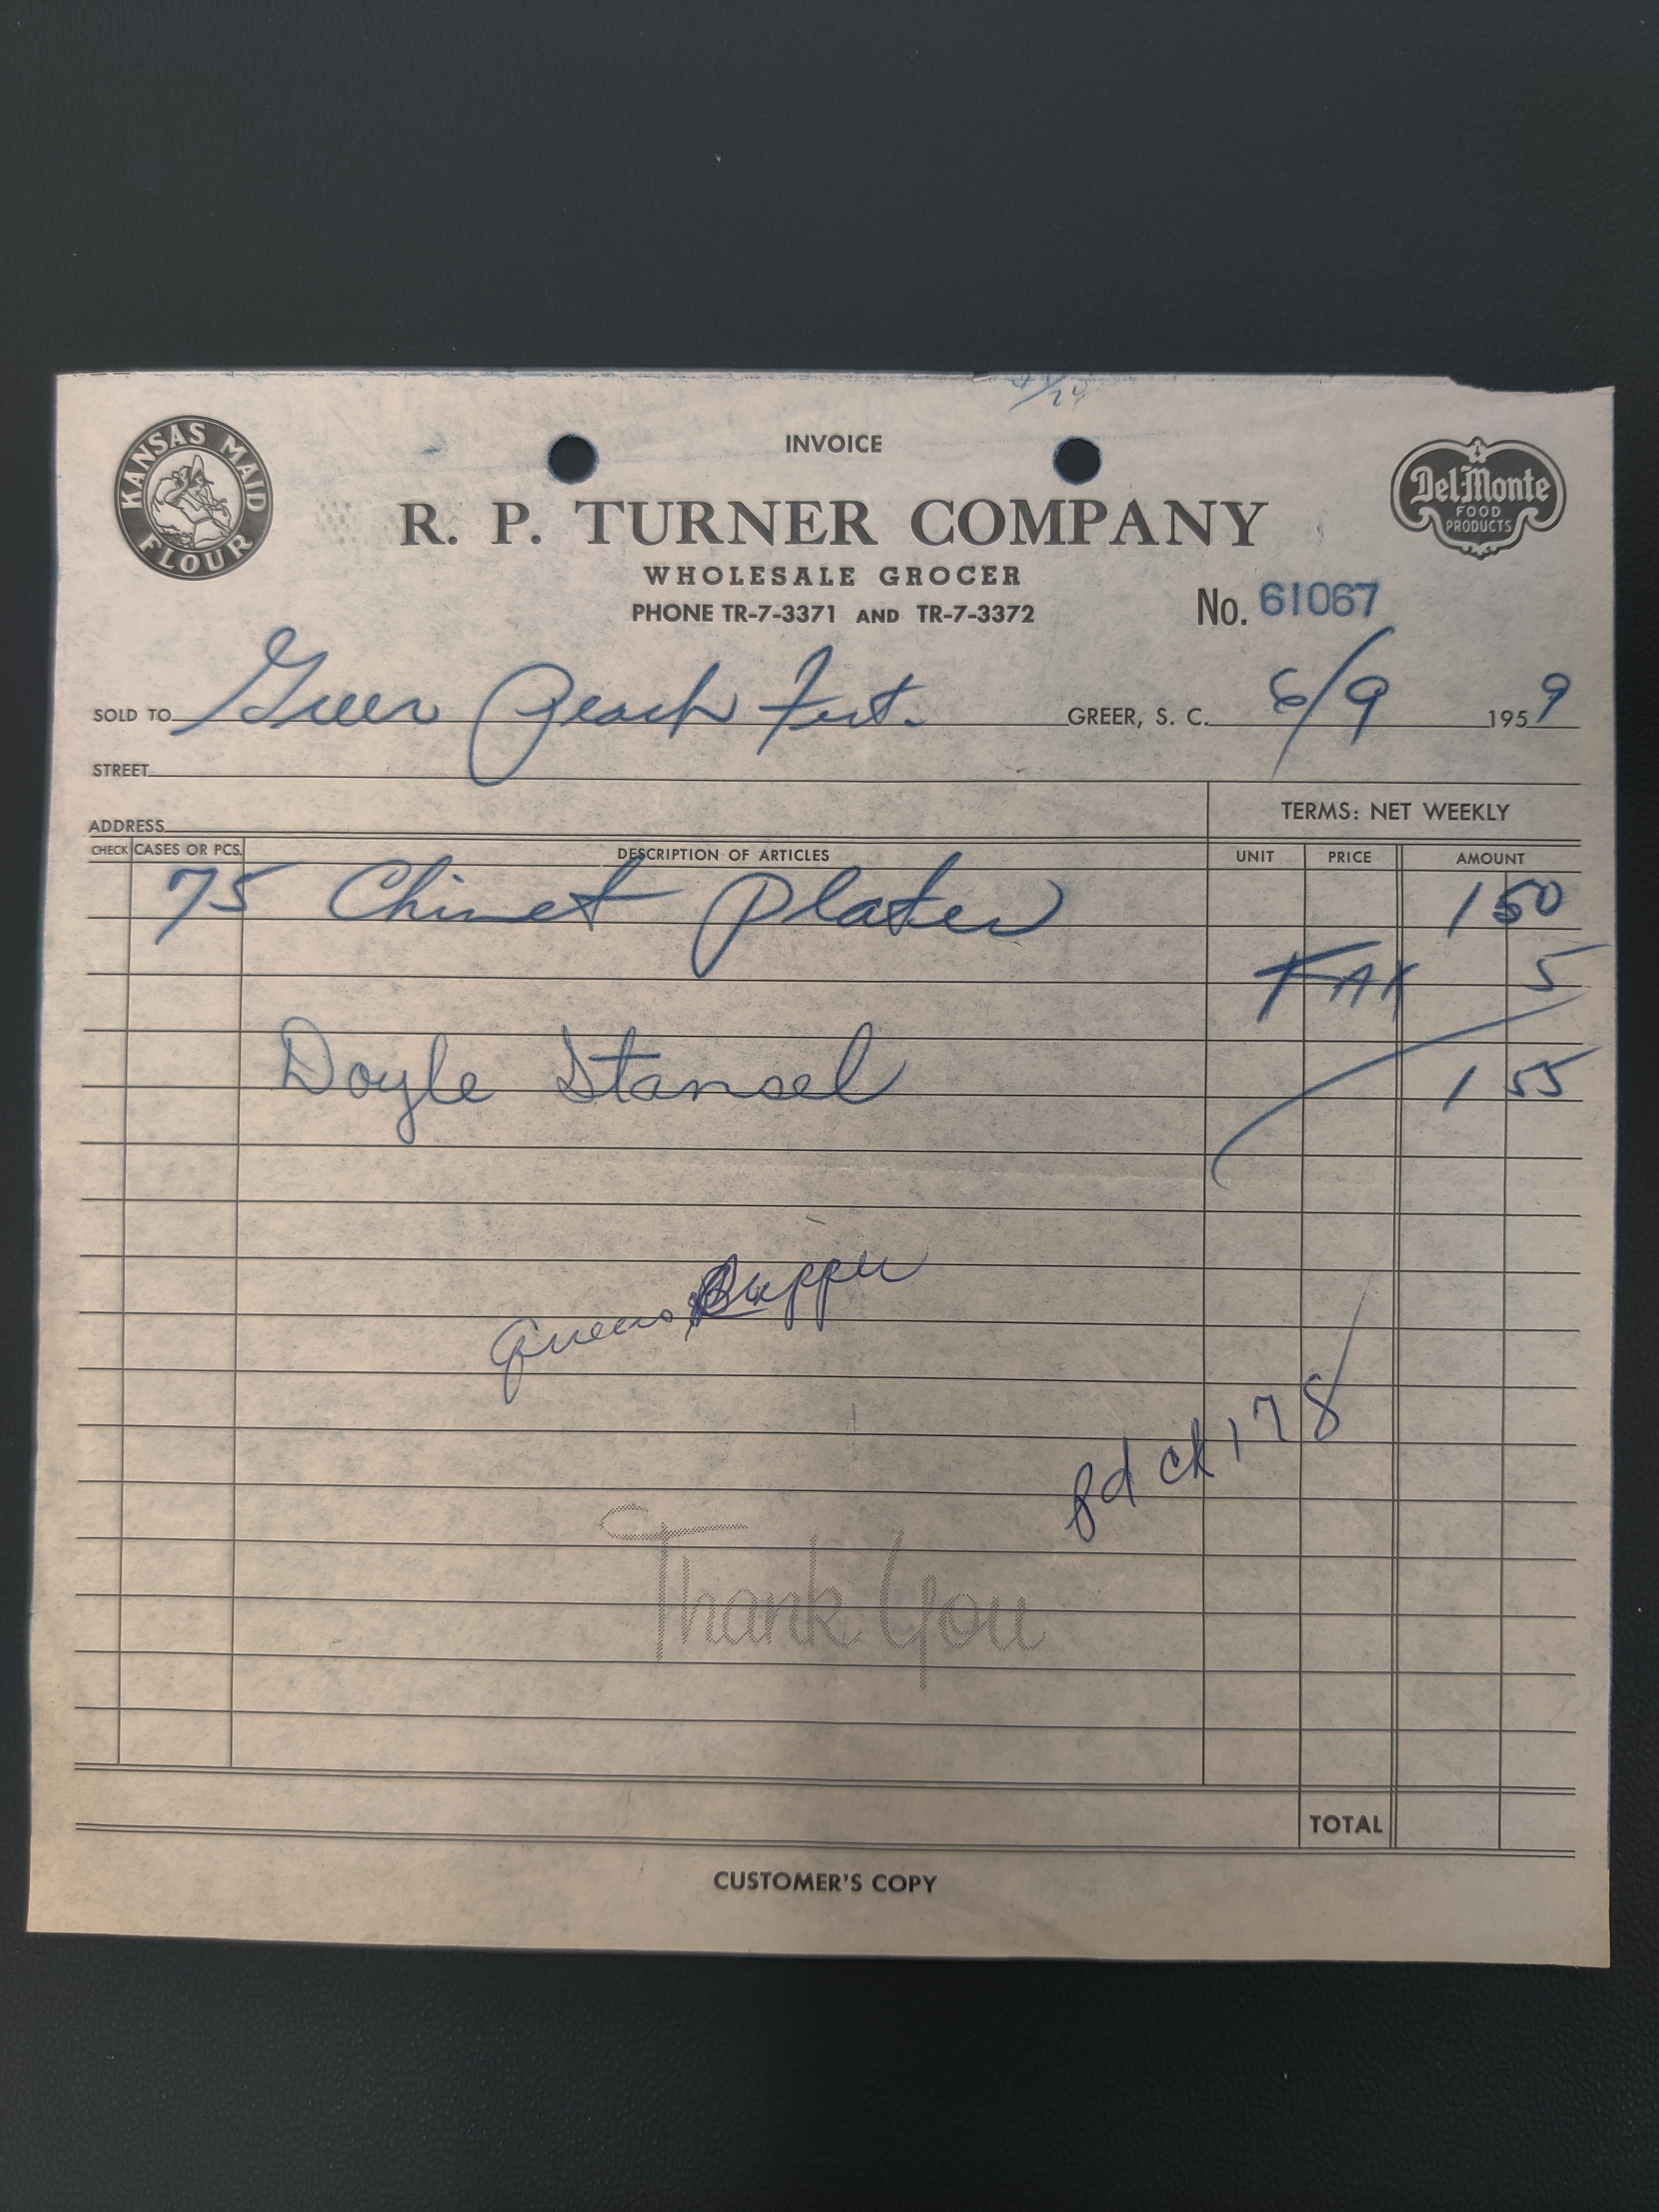 INVOICE
KANSAS MAID FLOUR
Del Monte
FOOD
PRODUCTS
R. P. TURNER COMPANY
WHOLESALE GROCER
PHONE TR-7-3371 AND TR-7-3372
No. 61067
SOLD TO Greer Peach Fest. GREER, S. C. 6/9 1959
STREET
ADDRESS
TERMS: NET WEEKLY
CHECK CASES OR PCS. DESCRIPTION OF ARTICLES UNIT PRICE AMOUNT
75 Chinet Plates 1 50
TAX 5
Doyle Stansel 1 55
Queens Supper
pd ck 178
Thank You
TOTAL
CUSTOMER'S COPY